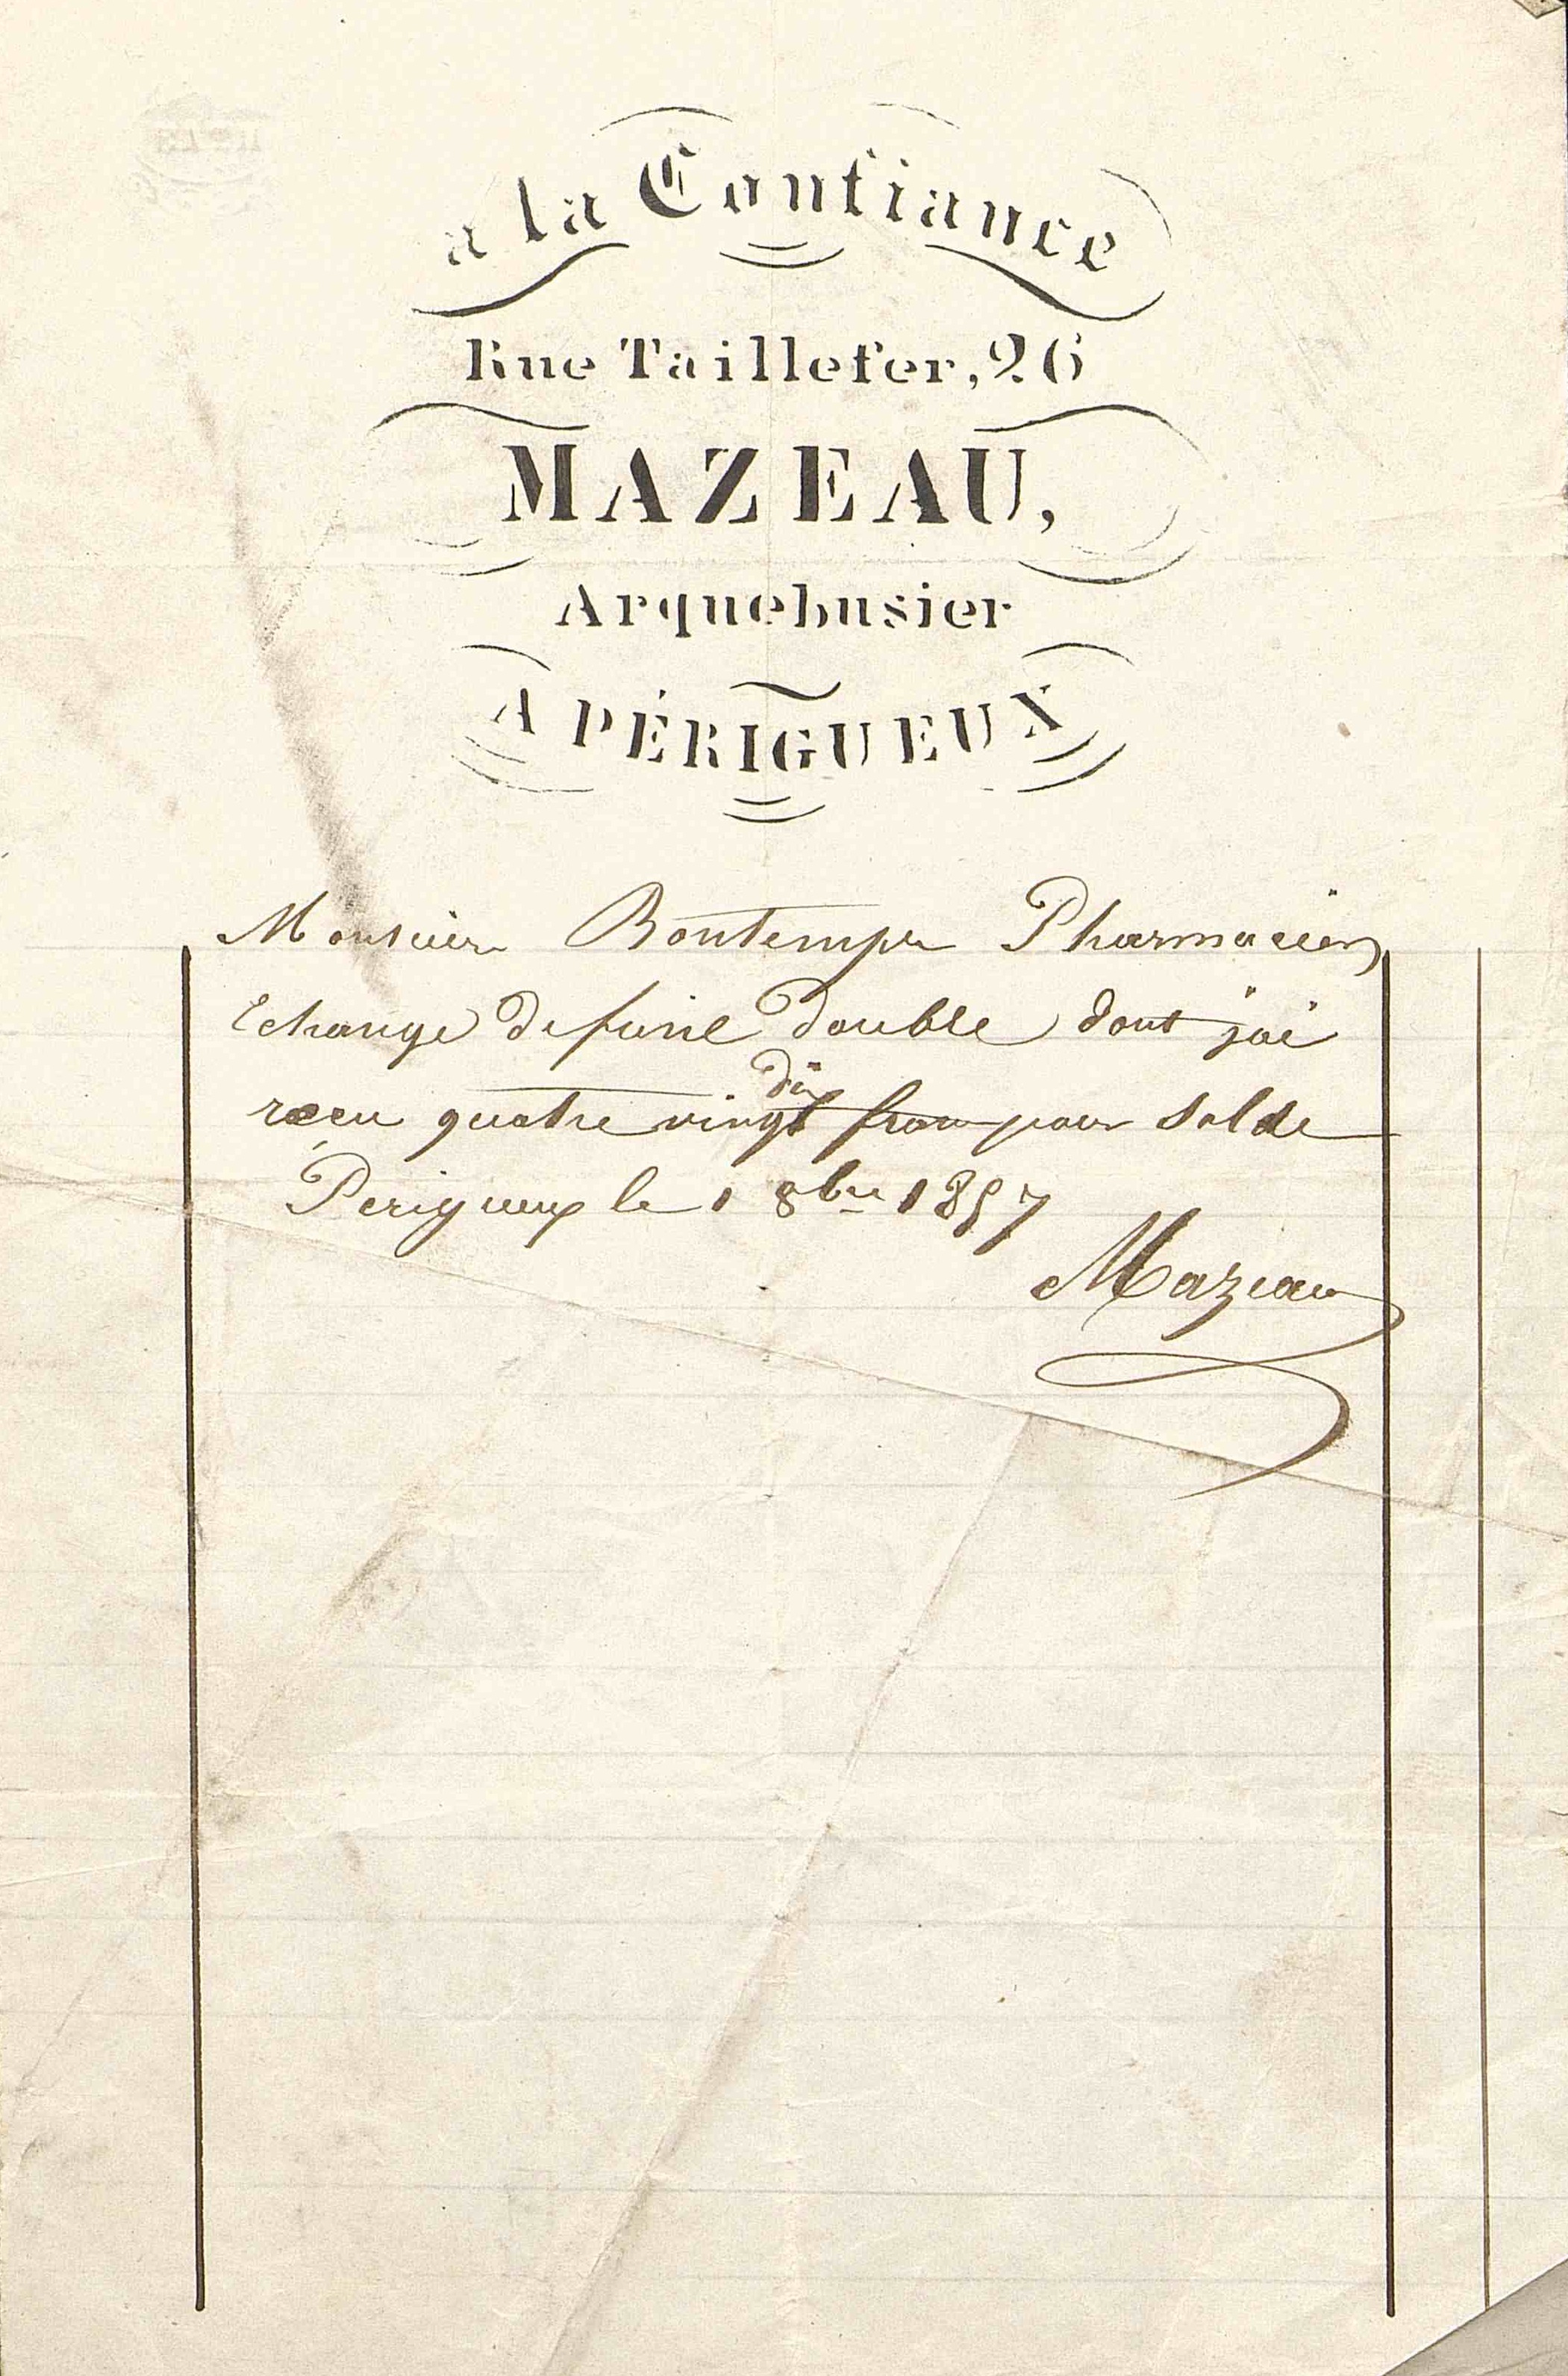 a la Confiance
Rue Taillefer, 26
MAZEAU,
Arquebusier
A PÉRIGUEUX
Monsieur Bontemps Pharmacien
Echange de fusil double dont jai
recu quatre vingt dix franc pour solde
Perigueux le 1 8bre 1857
Mazeau